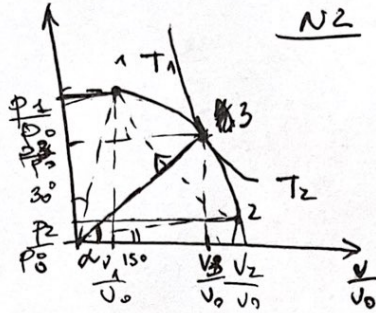 N2
1 T₁
P1
P₀
3
P3
P₀
30°
T₂
P2
P₀
2
α
15°
V₁
V₀
V3
V₀
V2
V₀
V
V₀